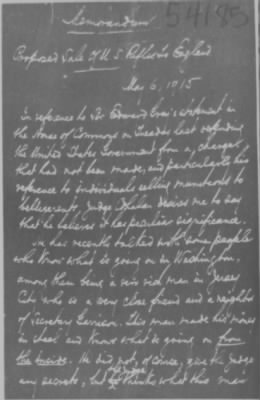 54185
Memorandum
Proposed Sale of U. S. Rifles to England
May 6, 1915
In reference to Sir Edward Grey's statement in
the House of Commons on Tuesday last defending
the United States Government from a charge
that had not been made, and particularly his
reference to individuals selling munitions to
belligerents, Judge desires me to say
that he believes it has peculiar significance.
He has recently talked with some people
who know what is going on in Washington,
among them being a very rich man in Jersey
City who is a very close friend and a neighbor
of Secretary Garrison. This man made his money
in steel and knows what is going on from
the inside. He did not, of course, give the Judge
any secrets, but thinks what this man